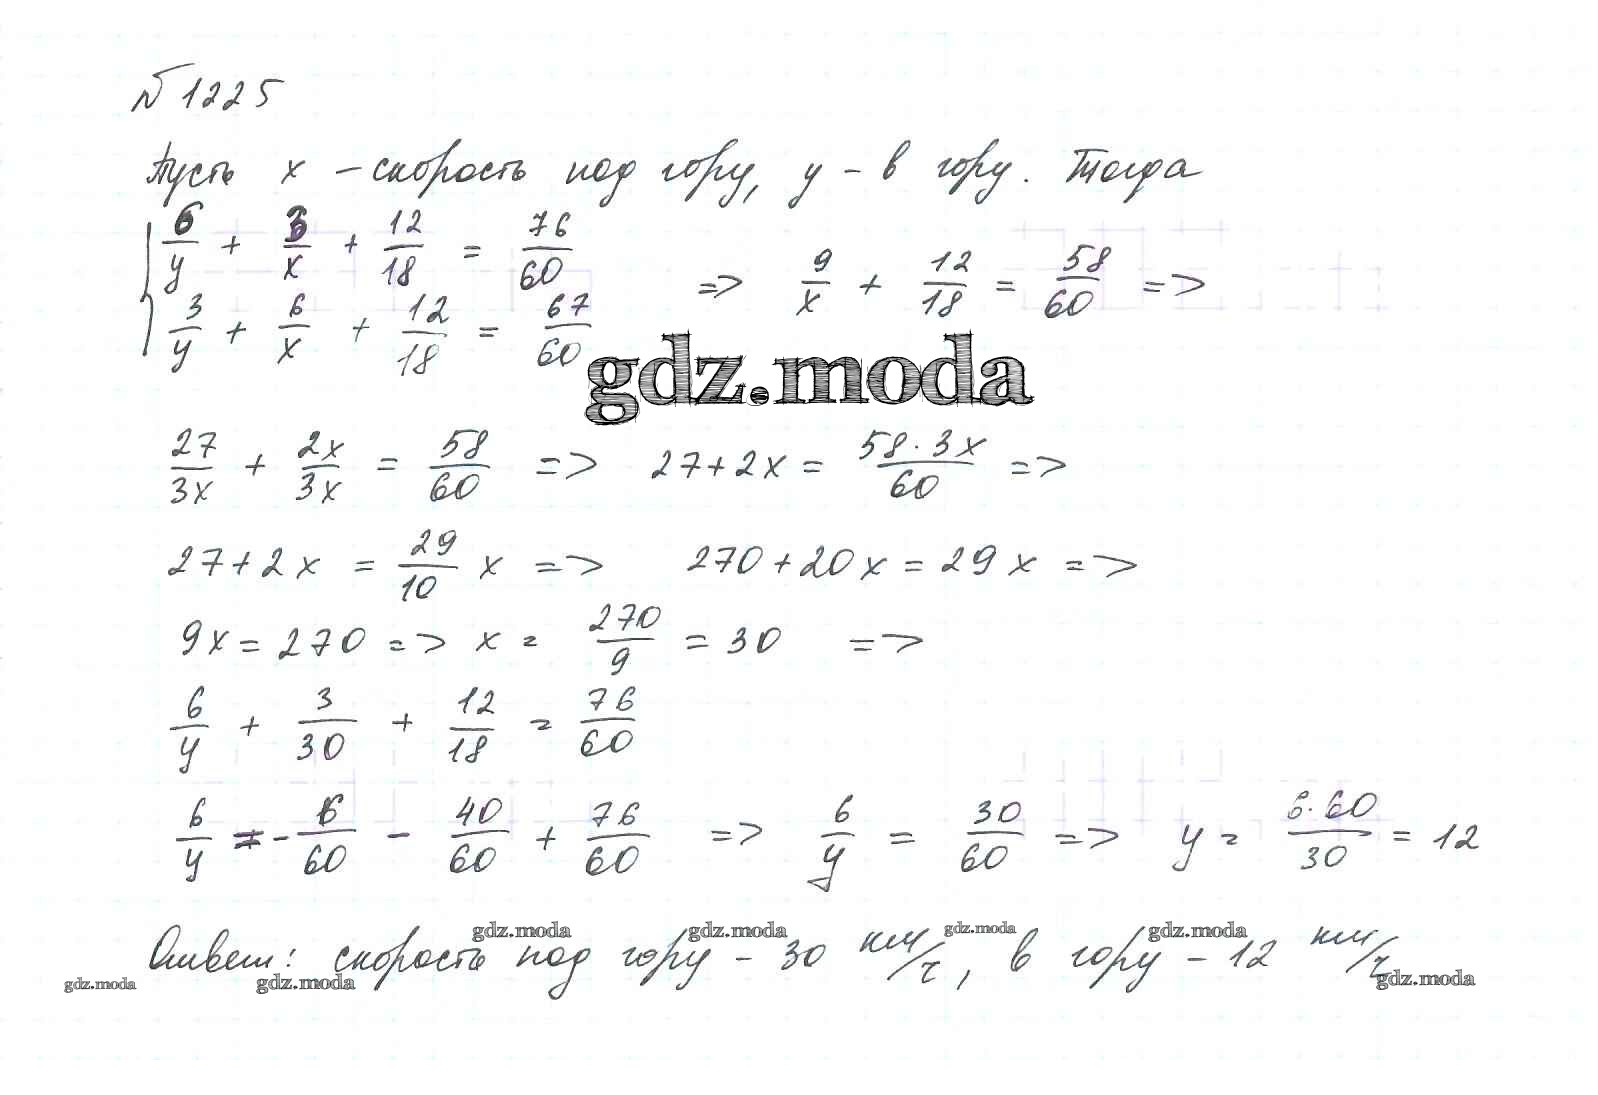 № 1225
Пусть x – скорость под гору, y – в гору. Тогда
{ 6/y + 3/x + 12/18 = 76/60
{ 3/y + 6/x + 12/18 = 67/60 => 9/x + 12/18 = 58/60 =>
gdz.moda
27/3x + 2x/3x = 58/60 => 27+2x = 58·3x/60 =>
27+2x = 29/10 x => 270+20x = 29x =>
9x = 270 => x = 270/9 = 30 =>
6/y + 3/30 + 12/18 = 76/60
6/y = - 6/60 - 40/60 + 76/60 => 6/y = 30/60 => y = 6·60/30 = 12
gdz.moda gdz.moda gdz.moda gdz.moda
Ответ: скорость под гору – 30 км/ч, в гору – 12 км/ч
gdz.moda gdz.moda gdz.moda